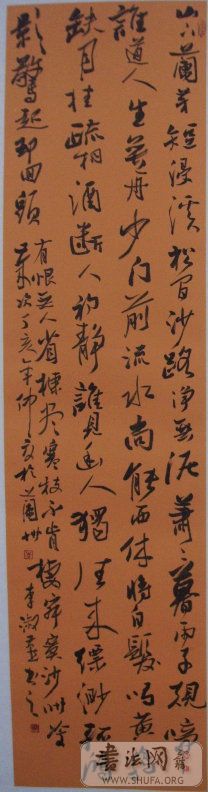 山下蘭芽短浸溪松間沙路净無泥蕭々暮雨子規啼
誰道人生無再少門前流水尚能西休將白髮唱黄
缺月挂疏桐漏断人初静誰見幽人獨往来縹緲孤
影驚起却回頭
有恨無人省揀尽寒枝不肯棲寂寞沙州冷
丁亥年仲夏於蘭州李淑
书法网
WWW.SHUFA.ORG